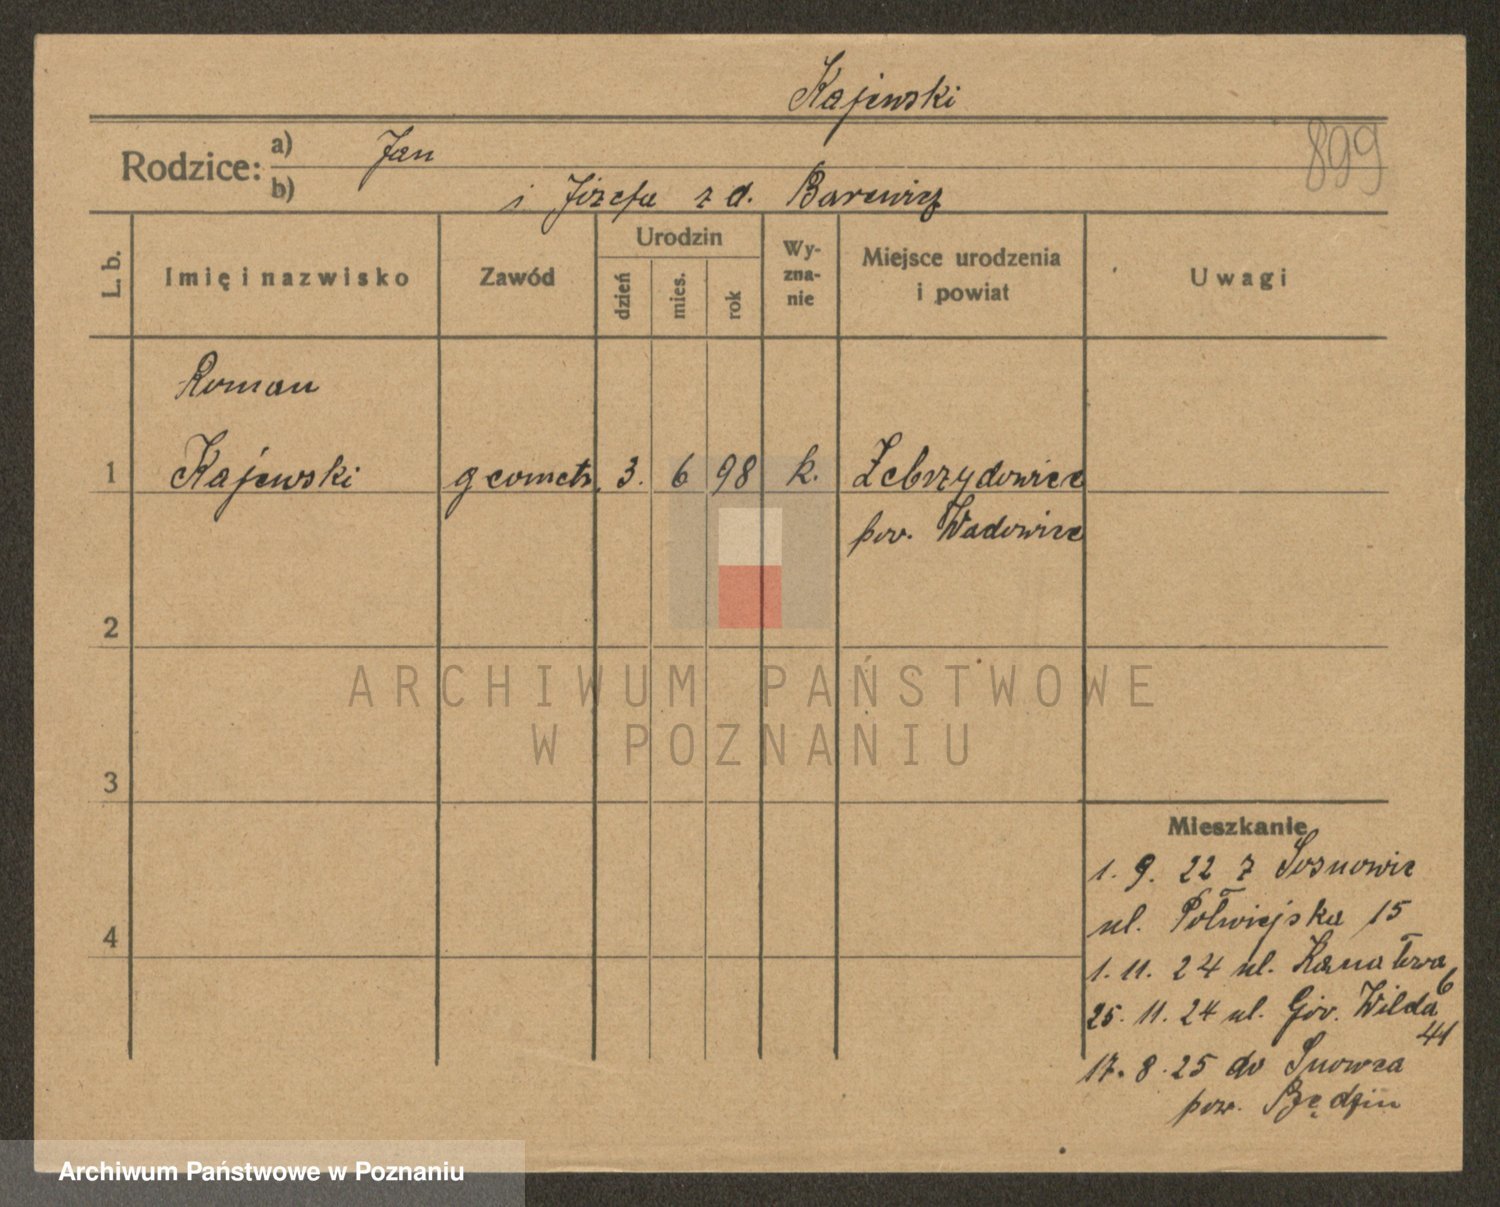 Kajewski
899
Rodzice: a) Jan
b) i Józefa z d. Barewicz
L. b.
Imię i nazwisko
Zawód
Urodzin
dzień
mies.
rok
Wy-
zna-
nie
Miejsce urodzenia
i powiat
Uwagi
Roman
1 Kajewski geometr. 3. 6 98 k. Zebrzydowice
pow. Wadowice
2
ARCHIWUM PAŃSTWOWE
W POZNANIU
3
Mieszkanie
1. 9. 22 z Sosnowic
ul. Półwiejska 15
4
1. 11. 24 ul. Kanałowa 6
25. 11. 24 ul. Gór. Wilda 41
17. 8. 25 do
pow. Będzin
Archiwum Państwowe w Poznaniu